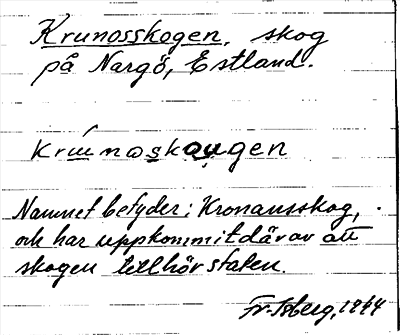 Krunosskogen, skog
på Nargö, Estland.
krúnaskougen
Namnet betyder: Kronansskog,
och har uppkommit därav att
skogen tillhör staten.
Fr. Isberg, 1944